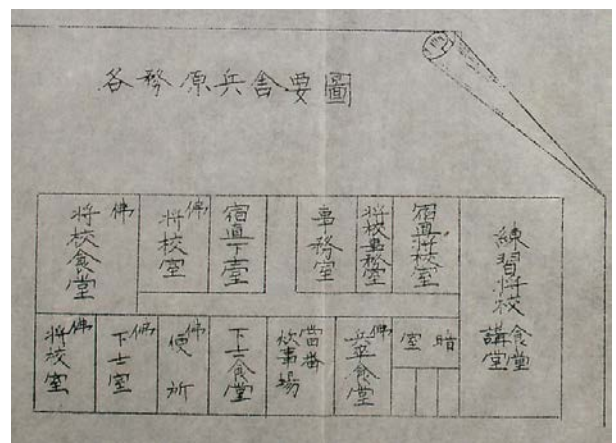 各務原兵舎要圖
門
佛 将校食堂
佛 将校室
宿直下士室
事務室
将校事務室
宿直将校室
練習将校
食堂
講堂
佛 将校室
佛 下士室
佛 便所
下士食堂
當番
炊事場
佛 兵卒食堂
暗室